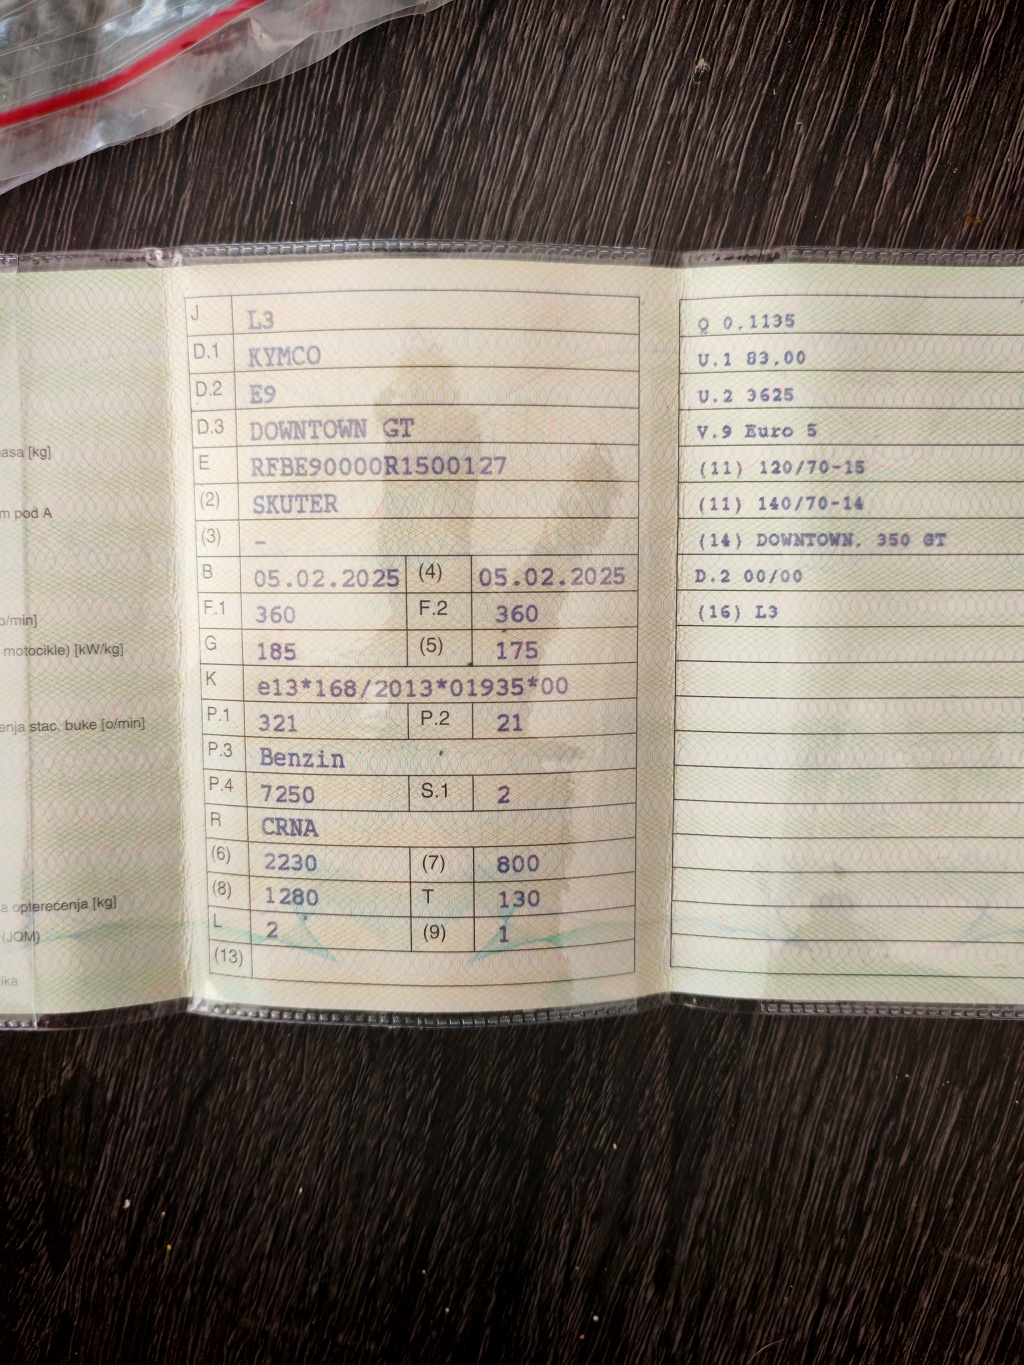 asa [kg]
m pod A
o/min]
motocikle) [kW/kg]
enja stac. buke [o/min]
a opterećenja [kg]
(JOM)
ika
J L3
D.1 KYMCO
D.2 E9
D.3 DOWNTOWN GT
E RFBE90000R1500127
(2) SKUTER
(3) –
B 05.02.2025 (4) 05.02.2025
F.1 360 F.2 360
G 185 (5) 175
K e13*168/2013*01935*00
P.1 321 P.2 21
P.3 Benzin
P.4 7250 S.1 2
R CRNA
(6) 2230 (7) 800
(8) 1280 T 130
L 2 (9) 1
(13)
Q 0.1135
U.1 83.00
U.2 3625
V.9 Euro 5
(11) 120/70-15
(11) 140/70-14
(14) DOWNTOWN. 350 GT
D.2 00/00
(16) L3